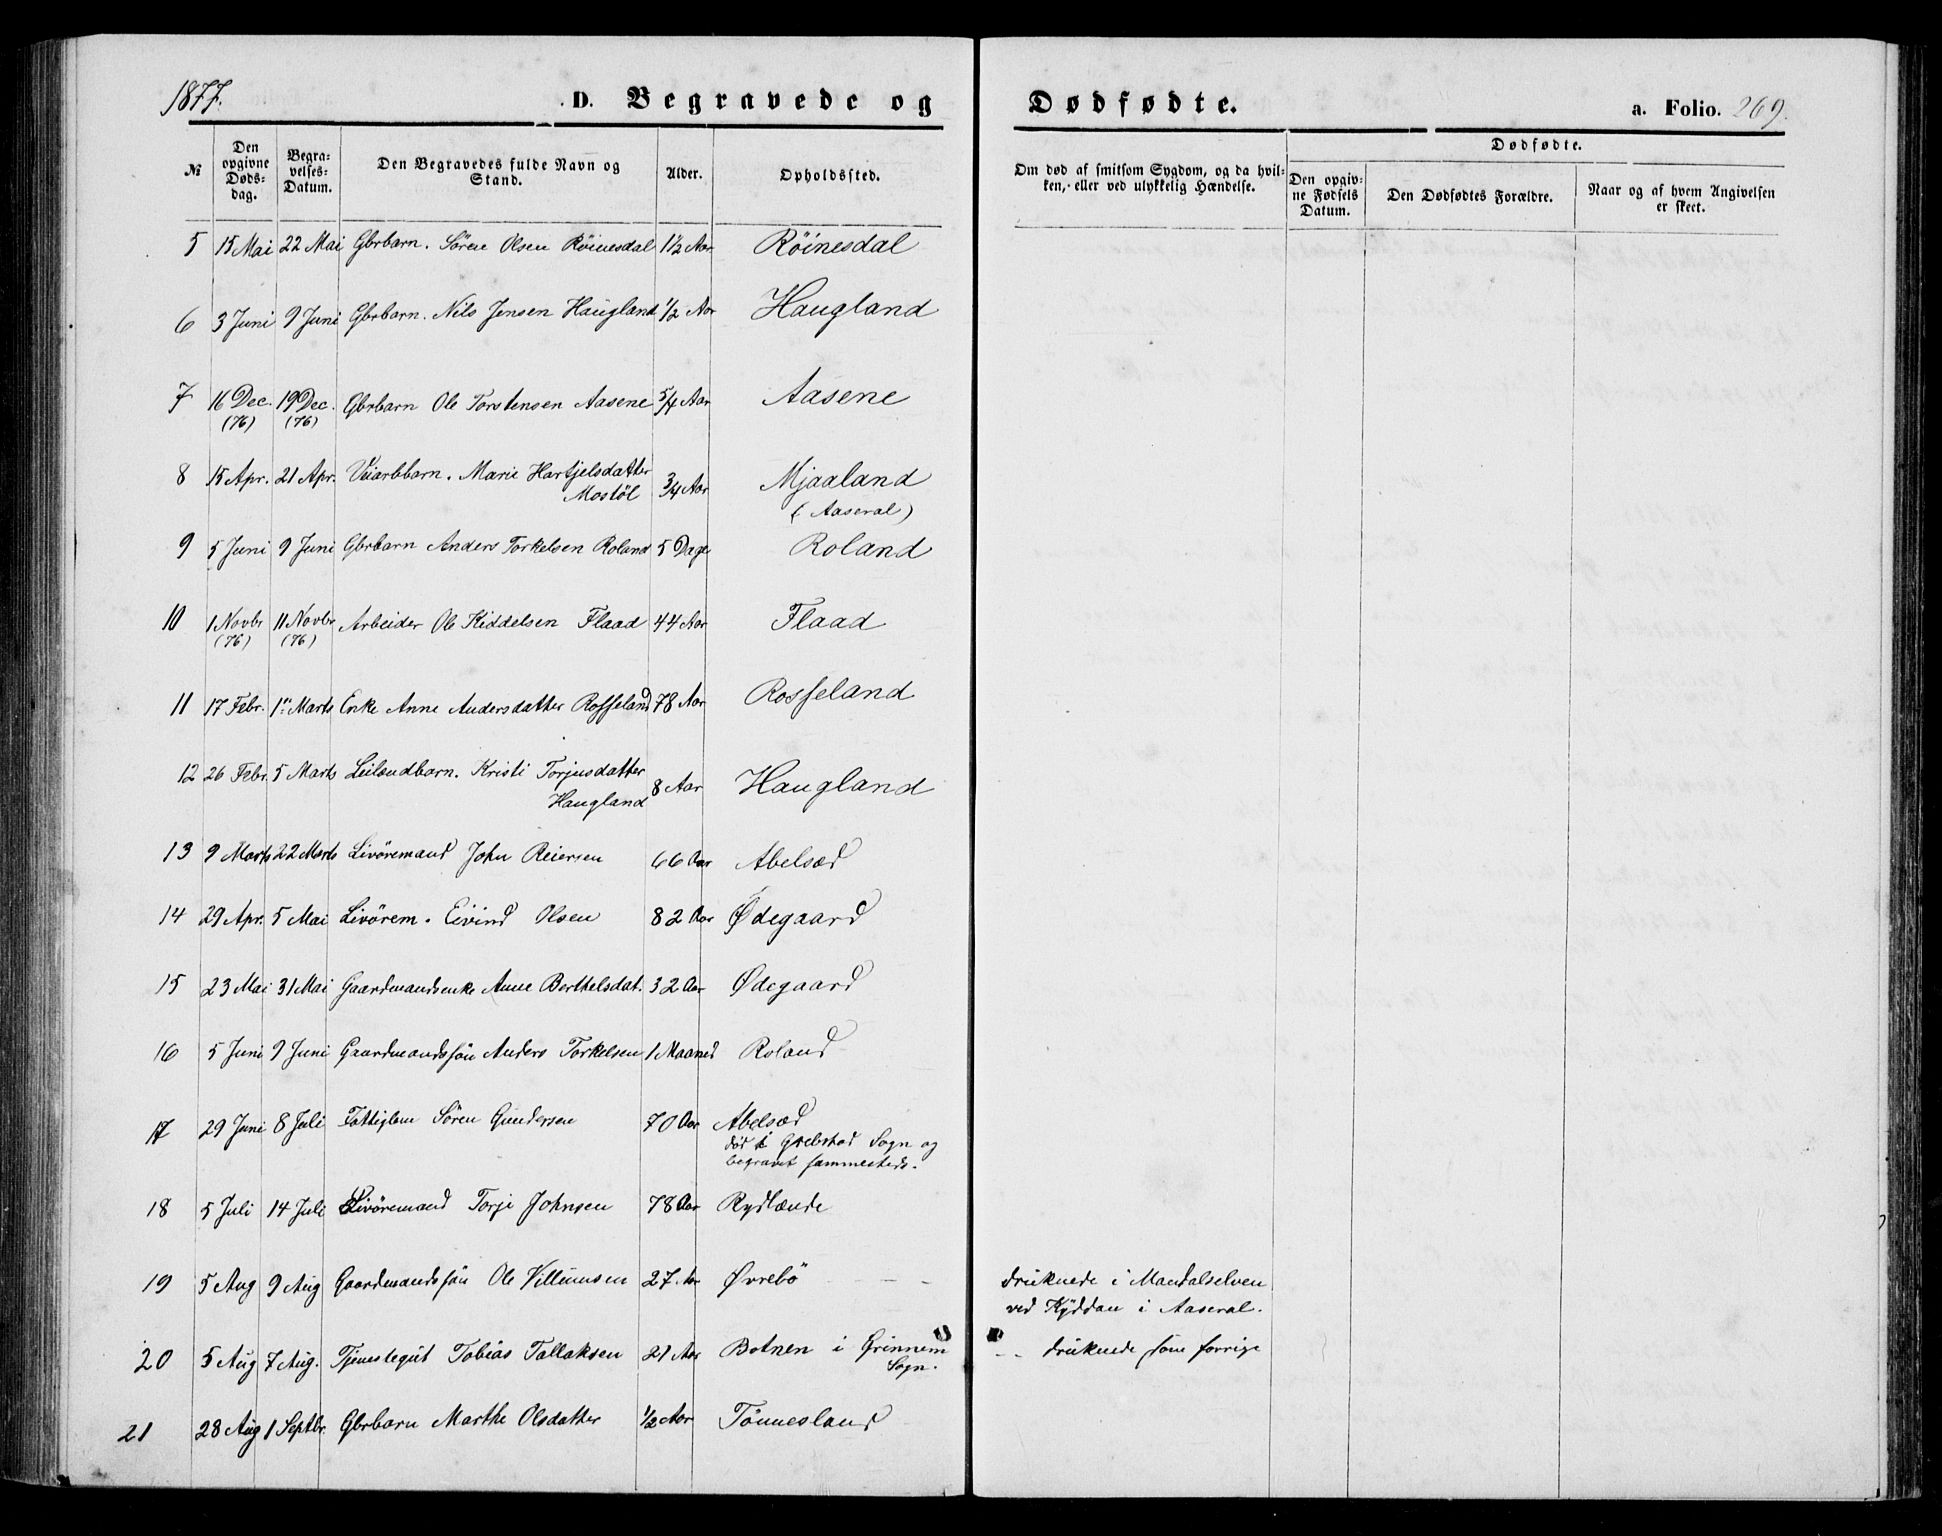 1877.
D. Begravede og
Dødfødte.
a. Folio. 269.
№
Den opgivne Døds-dag.
Begra-velses-Datum.
Den Begravedes fulde Navn og Stand.
Alder.
Opholdssted.
Om død af smitsom Sygdom, og da hvil-ken, eller ved ulykkelig Hændelse.
Dødfødte.
Den opgiv-ne Fødsels Datum.
Den Dødfødtes Forældre.
Naar og af hvem Angivelsen er skeet.
5 15 Mai 22 Mai Gbrbarn. Sören Olsen Röinesdal 1½ Aar Röinesdal
6 3 Juni 9 Juni Gbrbarn. Nils Jensen Haugland ½ Aar Haugland
7 16 Dec. 19 Dec. Gbrbarn Ole Torstensen Aasene 5/4 Aar Aasene
(76) (76)
8 15 Apr. 21 Apr. Veiarbbarn. Marie Hartjelsdatter
Mostöl 3/4 Aar Mjaaland
(Aaseral)
9 5 Juni 9 Juni Gbrbarn Anders Torkelsen Roland 5 Dage Roland
10 1 Novbr 11 Novbr Arbeider Ole Kiddelsen Flaad 44 Aar Flaad
(76) (76)
11 17 Febr. 1n Marts Enke Anne Andersdatter Rosseland 78 Aar Rosseland
12 26 Febr. 5 Marts Leilændbarn. Kristi Torjusdatter
Haugland 8 Aar Haugland
13 9 Marts 22 Marts Livöremand John Reiersen 66 Aar Abelsæd
14 29 Apr. 5 Mai Livörem. Eivind Olsen 82 Aar Ødegaard
15 23 Mai 31 Mai Gaardmandsenke Anne Berthelsdat. 32 Aar Ødegaard
16 5 Juni 9 Juni Gaardmandssön Anders Torkelsen 1 Maaned Roland
17 29 Juni 8 Juli Fattiglem Sören Gundersen 70 Aar Abelsæd
död i Grebstad Sogn og
begravet sammesteds.
18 5 Juli 14 Juli Livöremand Torje Johnsen 78 Aar Rydlænde
19 5 Aug 9 Aug Gaardmandssön Ole Villumsen 27 Aar Øvrebö - - druknede i Mandalselven
ved Kÿddan i Aaseral.
20 5 Aug 7 Aug. Tjenestegut Tobias Tallaksen 21 Aar Botnen i Grinnem
Sogn. - - druknede som forrige
21 28 Aug 1 Septbr. Gbrbarn Marthe Olsdatter ½ Aar Tönnesland